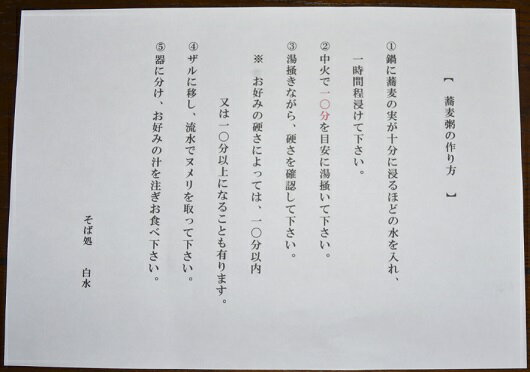 【　蕎麦粥の作り方　】
①鍋に蕎麦の実が十分に浸るほどの水を入れ、
一時間程浸けて下さい。
②中火で一〇分を目安に湯掻いて下さい。
③湯掻きながら、硬さを確認して下さい。
※　お好みの硬さによっては、一〇分以内
又は一〇分以上になることも有ります。
④ザルに移し、流水でヌメリを取って下さい。
⑤器に分け、お好みの汁を注ぎお食べ下さい。
そば処　白水